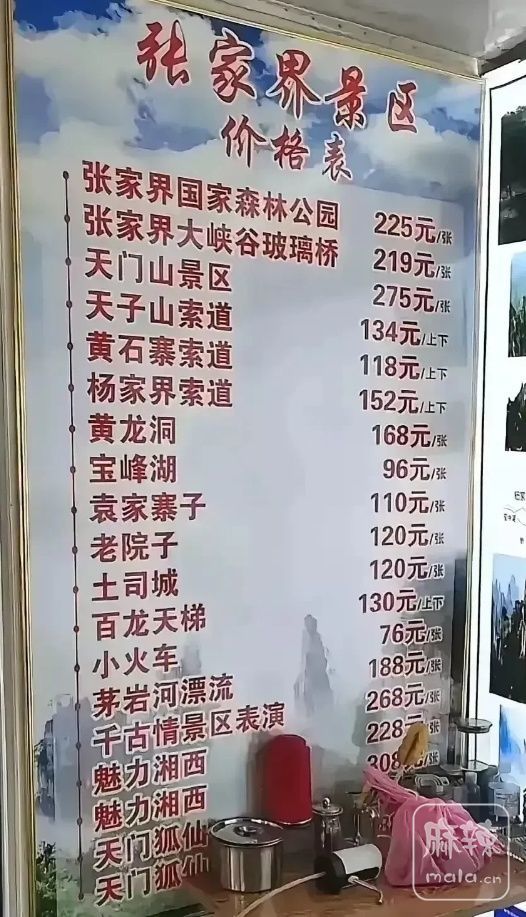 张家界景区
价格表
张家界国家森林公园 225元/张
张家界大峡谷玻璃桥 219元/张
天门山景区 275元/张
天子山索道 134元/上下
黄石寨索道 118元/上下
杨家界索道 152元/上下
黄龙洞 168元/张
宝峰湖 96元/张
袁家寨子 110元/张
老院子 120元/张
土司城 120元/张
百龙天梯 130元/上下
小火车 76元/张
茅岩河漂流 188元/张
千古情景区表演 268元/张
魅力湘西 228元
魅力湘西 308
天门狐仙
天门狐仙
麻辣
mala.cn